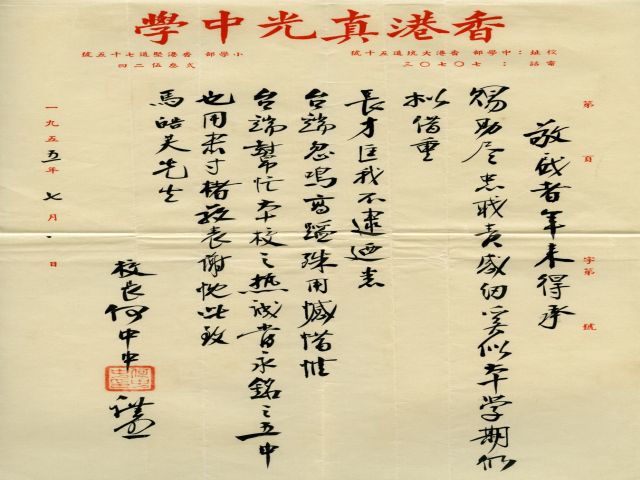 香港真光中學
校址：中學部 香港大坑道五十號 小學部 香港堅道七十五號
電話：七〇七〇三 弍叁伍二四
第 頁 字第 號
敬啟者年來得承
賜助尽忠職責感紉奚似本学期仍
拟借重
長才匡我不逮迺悉
台端忽鳴高蹈殊用憾惜惟
台端幫忙本校之热誠當永銘之五中
也用肅寸楮敬表謝忱此致
馬皓 先生
校長何中中
一九五五年七月 日